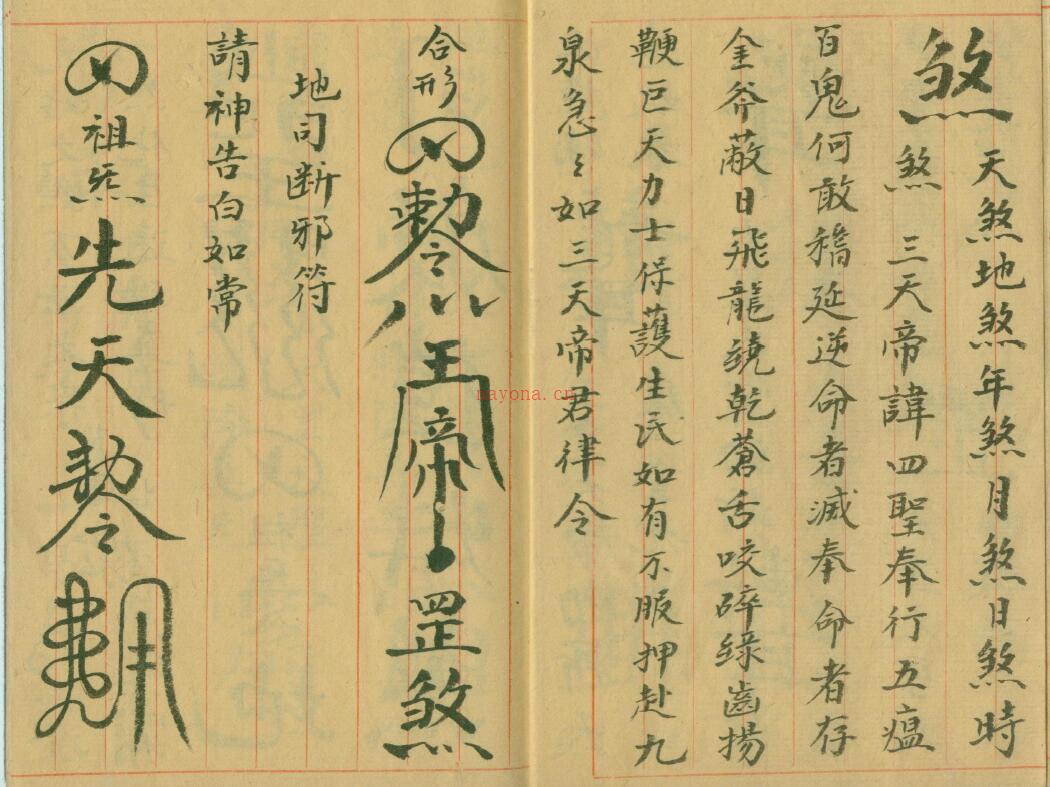 煞 天煞地煞年煞月煞日煞時
煞 三天帝諱四聖奉行五瘟
百鬼何敢稽延逆命者滅奉命者存
金斧蔽日飛龍繞乾蒼舌咬碎綠齒揚
鞭巨天力士保護生民如有不服押赴九
泉急々如三天帝君律令
合形
勅令
王帝
罡煞
地司断邪符
請神告白如常
祖炁
先天
勅令
nayona.cn